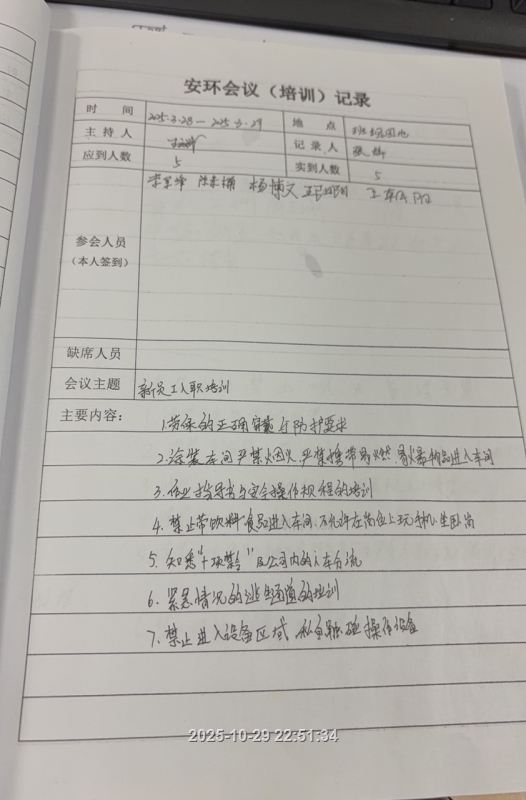 安环会议(培训)记录
时 间 2025.3.28— 2025.3.29 地 点 班组园地
主 持 人 记 录 人 张
应到人数 5 实到人数 5
杨博文
参会人员
(本人签到)
缺席人员
会议主题 新员工入职培训
主要内容: 1.劳保的正确穿戴与防护要求
2.涂装车间严禁烟火,严禁携带易燃、易爆物品进入车间
3.作业指导书与安全操作规程的培训
4.禁止带饮料食品进入车间,不允许在岗位上玩手机、坐卧岗
5.知悉"十项禁令"及公司内的人车分流
6.紧急情况的逃生通道的培训
7.禁止进入设备区域 私自触碰操作设备
2025-10-29 22:51:34